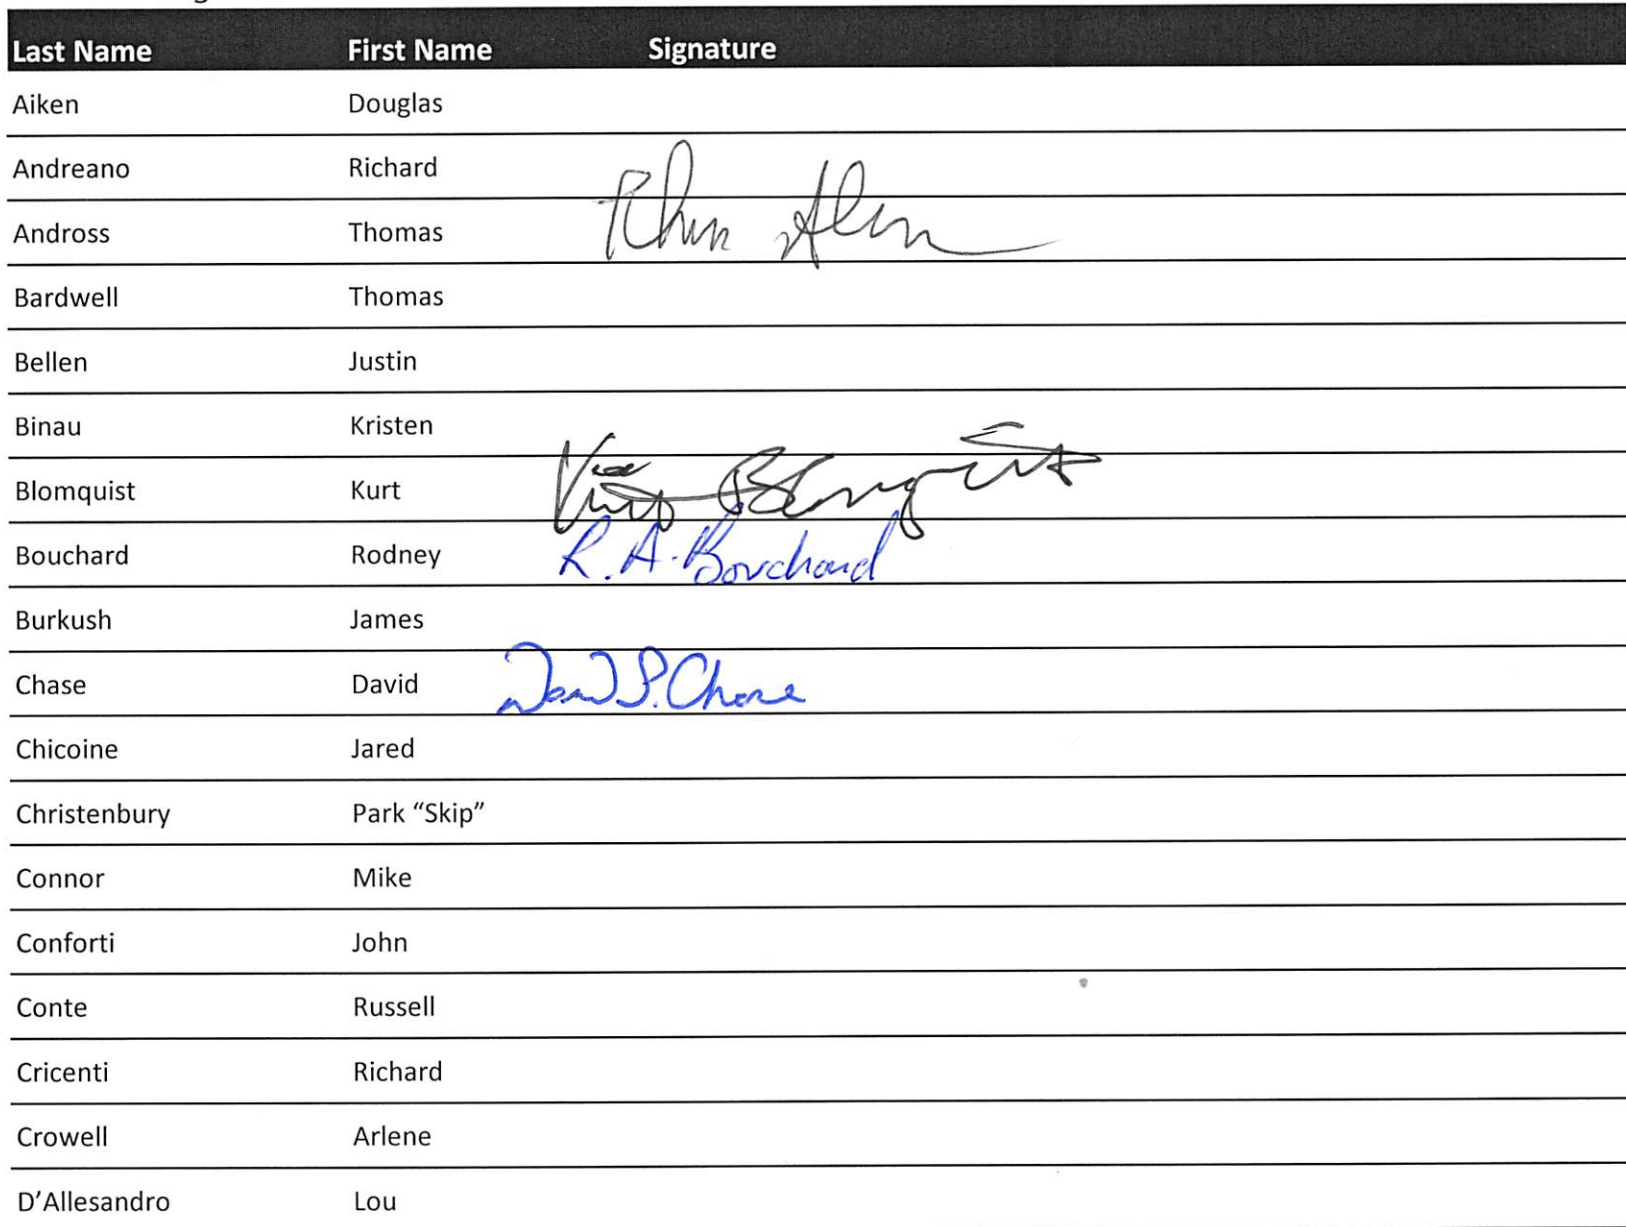 Last Name First Name Signature
Aiken Douglas
Andreano Richard
Andross Thomas
Bardwell Thomas
Bellen Justin
Binau Kristen
Blomquist Kurt Kurt Blomquist
Bouchard Rodney R. A. Bouchard
Burkush James
Chase David David P. Chase
Chicoine Jared
Christenbury Park “Skip”
Connor Mike
Conforti John
Conte Russell
Cricenti Richard
Crowell Arlene
D’Allesandro Lou